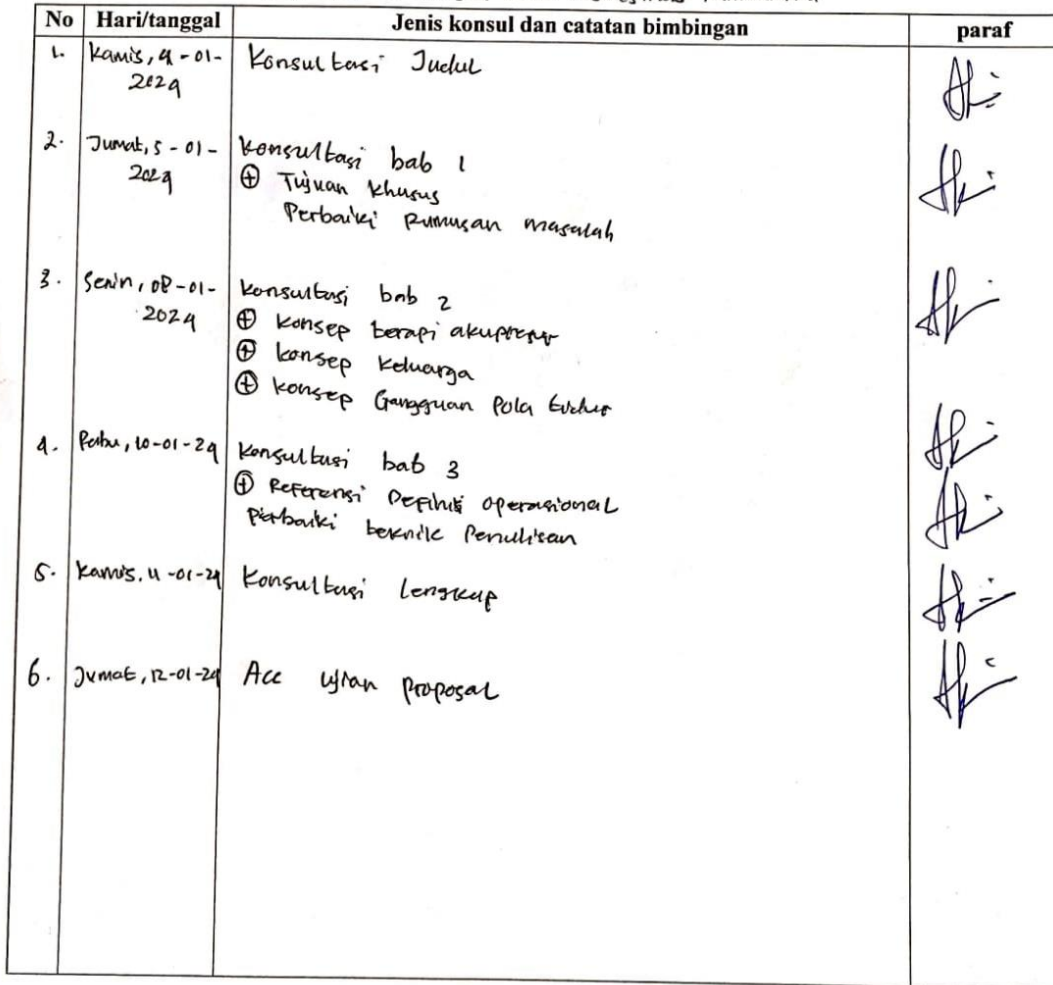 No Hari/tanggal Jenis konsul dan catatan bimbingan paraf
1. Kamis, 4-01-2024 Konsultasi Judul
2. Jumat, 5-01-2024 Konsultasi bab 1
⊕ Tujuan Khusus
Perbaiki Rumusan masalah
3. Senin, 08-01-2024 Konsultasi bab 2
⊕ Konsep terapi akupresur
⊕ Konsep Keluarga
⊕ Konsep Gangguan Pola tidur
4. Rabu, 10-01-24 Konsultasi bab 3
⊕ Referensi Definisi Operasional
Perbaiki teknik Penulisan
5. Kamis, 11-01-24 Konsultasi Lengkap
6. Jumat, 12-01-24 Acc ujian proposal